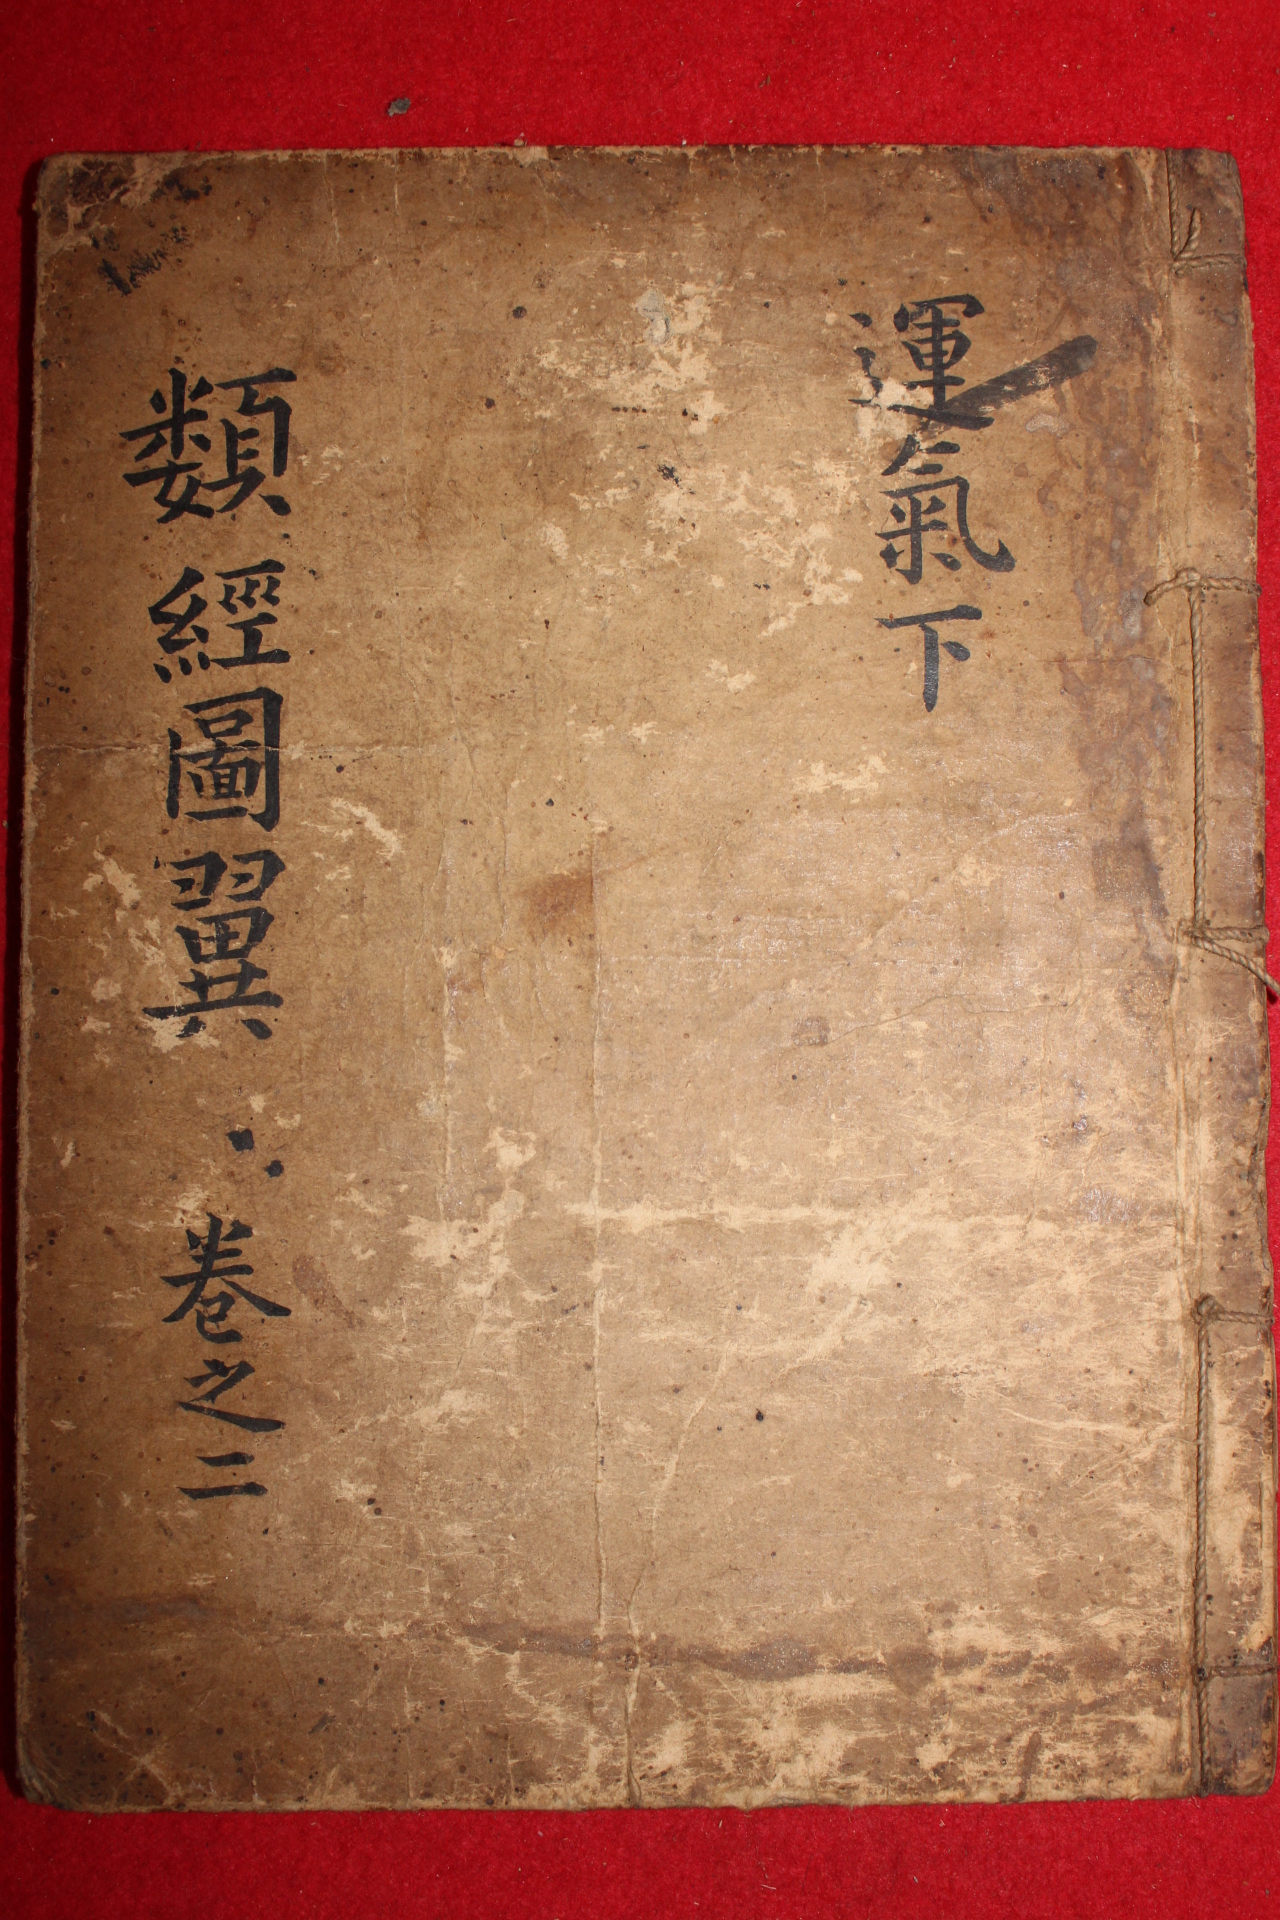 運氣下
類經圖翼 卷之二